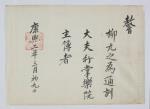 督
柳九之爲通訓
大夫行掌樂院
主簿者
康熙二年三月初九日